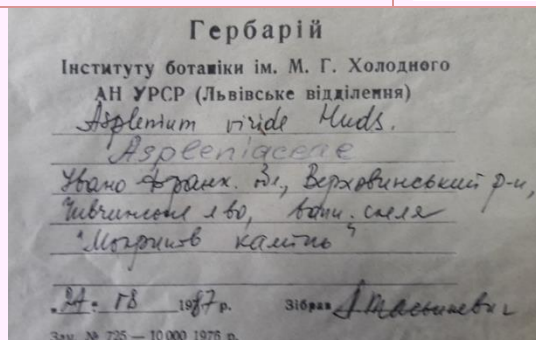 Гербарій
Інституту ботаніки ім. М. Г. Холодного
АН УРСР (Львівське відділення)
Asplenium viride Huds.
Aspleniaceae
Івано-Франк. обл., Верховинський р-н,
вапн. скеля
камінь"
1987 р. Зібрав
Зам. № 725 — 10 000 1976 р.